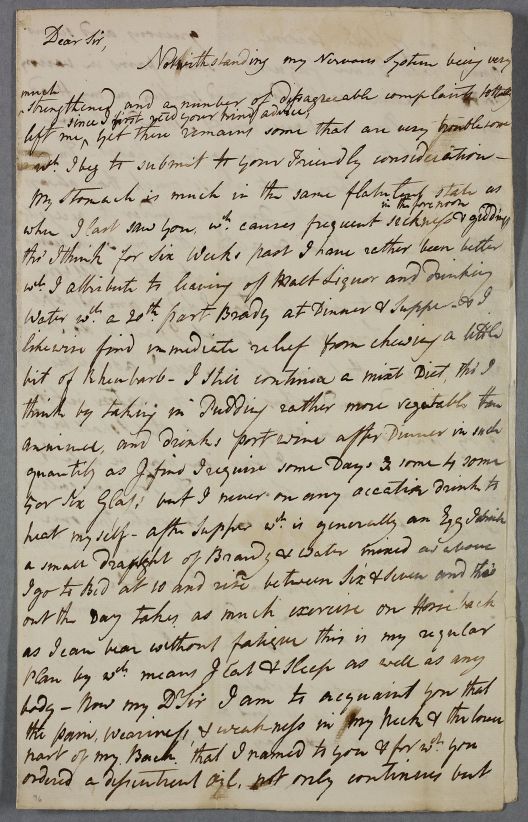 Dear Sir,
Notwithstanding my Nervous System being very
much
strengthened, and a number of disagreeable complaints totally
since I first rec'd your kind advice,
left me, yet there remains some that are very troublesome
wch. I beg to submit to your Friendly consideration –
My Stomach is much in the same flatulent state as
in the forenoon
when I last saw you, wch. causes frequent sickness & giddiness
tho' I think for Six Weeks past I have rather been better
wch I attribute to leaving of Malt Liquor and drinking
Water wth. a 20th. part Brady at Dinner & Supper - & I
likewise find immediate relief from chewing a little
bit of Rheubarb - I still continue a mixt Diet, tho' I
think by taking in Pudding rather more vegetable than
animal, and drink port wine after Dinner in such
quantity as I find I require some Days 3 some 4 some
5 or Six Glass; but I never on any occation drink to
heat myself - after Supper wch. is generally an Egg I drink
a small Draught of Brandy & Water mixed as above
I go to Bed at 10 and rise between Six & Seven and thro
out the Day take, as much exercise on Horse back
as I can bear without fatigue this is my regular
Plan by wch. means I Eat & Sleep as well as any
body - Now my Dr Sir I am to acquaint you that
the pain, weariness, & weakness in my Neck & the lower
part of my Back, that I named to you & for wch. you
ordered a discutient Oil, not only continues but